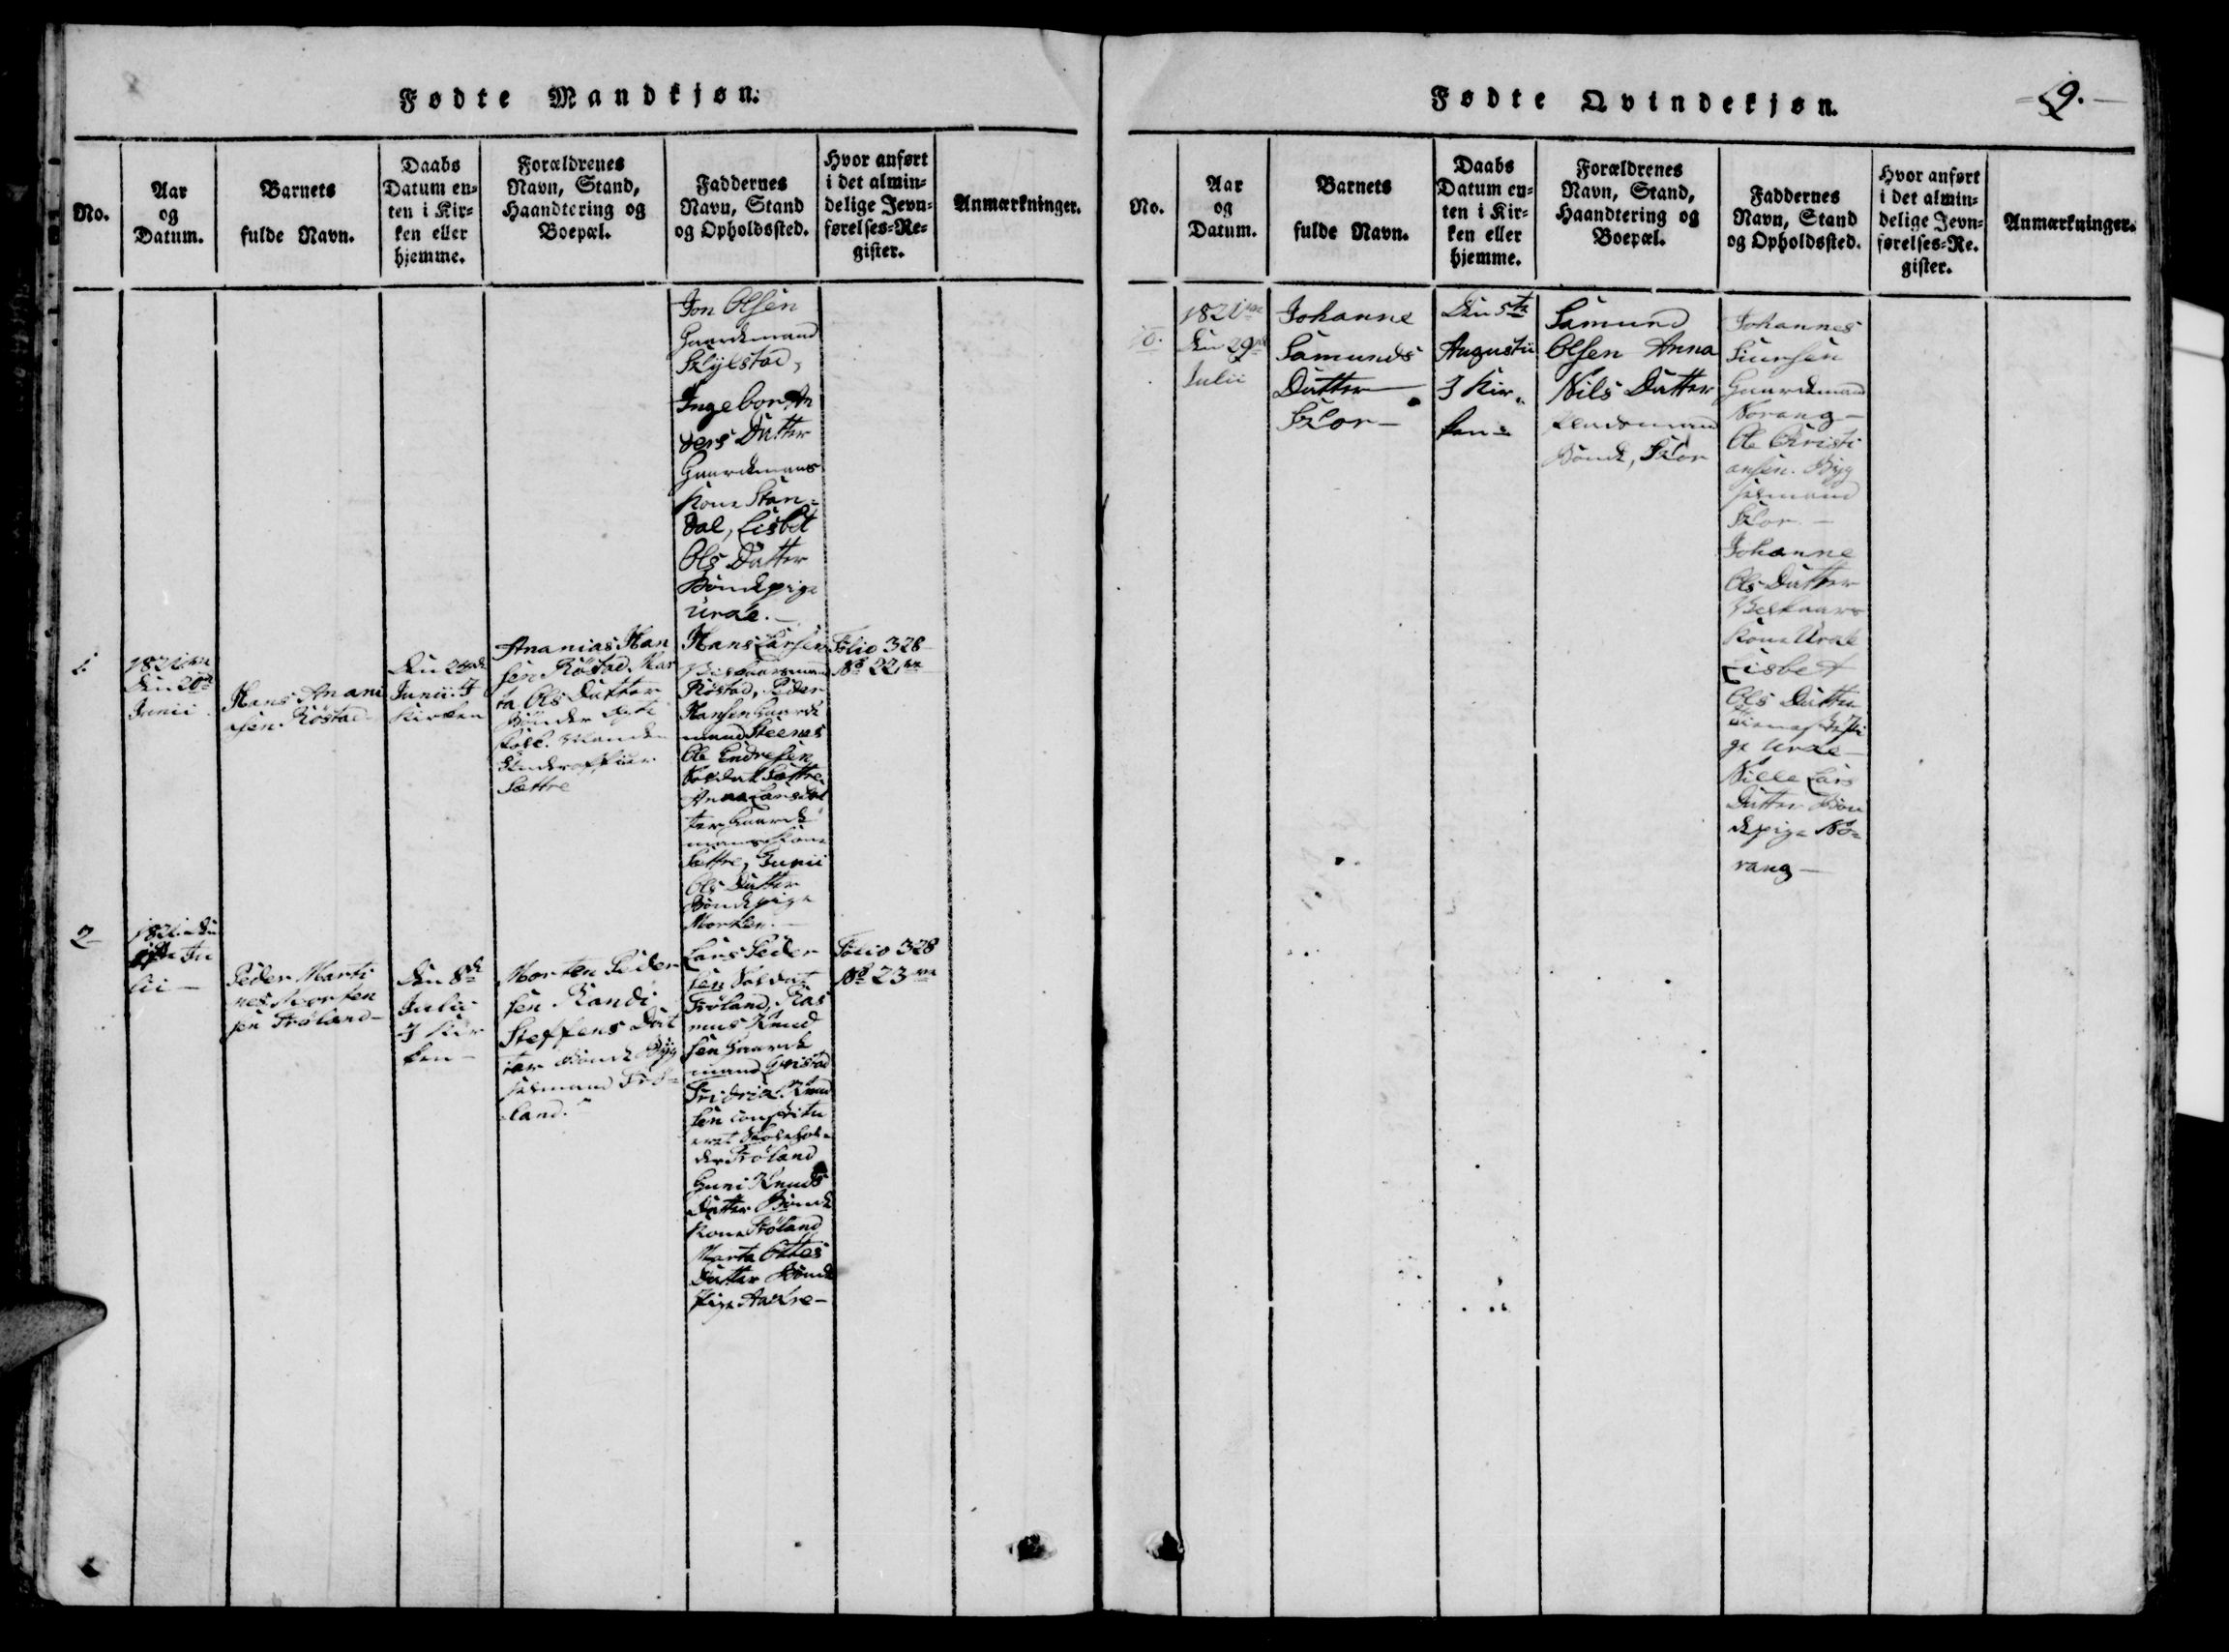 Fødte Mandkjøn.
No.
Aar
og
Datum.
Barnets
fulde Navn.
Daabs
Datum en-
ten i Kir-
ken eller
hjemme.
Forældrenes
Navn, Stand,
Haandtering og
Boepæl.
Faddernes
Navn, Stand
og Opholdssted.
Hvor anført
i det almin-
delige Jevn-
førelses-Re-
gister.
Anmærkninger.
Jon Olsen
Gaardmand
Skylstad,
Ingebor An
ders Datter
Gaardmans
Kone Stan-
dal, Lisbet
Ols Datter
Bondepige
Urde.
1.
1821
Den 20de
Junii
Hans Anani
sen. Röstad
Den 24de
Junii. I
Kirken
Ananias Han
sen Röstad, Mar
ta Ols Datter
Bönder
Underofficier
Sættre
Hans Larsen
Röstad, Peder
Hansen Gaard
mand Steenes
Ole Endresen
Soldat Sættre
Anna Lars Dat
ter Gaard
mans Kone
Sættre, Gunii
Ols Datter
Bondepige
Morken.
Folio 328
No 22
2
1821 den
Ju
lii
Peder Marti
nes Morten
sen Fröland
Den 8de
Julii
I Kir
ken
Morten Peder
sen. Randi
Steffens Dat
ter Bonde Byg
selmand Frö-
land.
Lars Peder
sen Soldat
Fröland, Ras
mus Knud
sen Gaard
mand
Fridrick Knud
sen Constitu
eret Skolehol-
der Fröland
Guni Knuds
Datter Bonde
Kone Fröland
Marta Ottes
Datter Bonde
Pige Aackre
Folio 328
No 23
Fødte Qvindekjøn.
9.
No.
Aar
og
Datum.
Barnets
fulde Navn.
Daabs
Datum en-
ten i Kir-
ken eller
hjemme.
Forældrenes
Navn, Stand,
Haandtering og
Boepæl.
Faddernes
Navn, Stand
og Opholdssted.
Hvor anført
i det almin-
delige Jevn-
førelses-Re-
gister.
Anmærkninger.
1821
Den 29de
Julii
Johanne
Samunds
Datter
Skor
Den 5te
Augustii
I Kir-
ken
Samund
Olsen Anna
Nils Datter
Pladsmand
Bonde, Skor
Johannes
Siursen
Gaardmand
Norang
Ole Christi
ansen. Byg
selmand
Skor
Johanne
Ols Datter
Kone Urde
Lisbet
Ols Datter
ge Urde
Nille Lars
Datter Bon
depige No-
rang